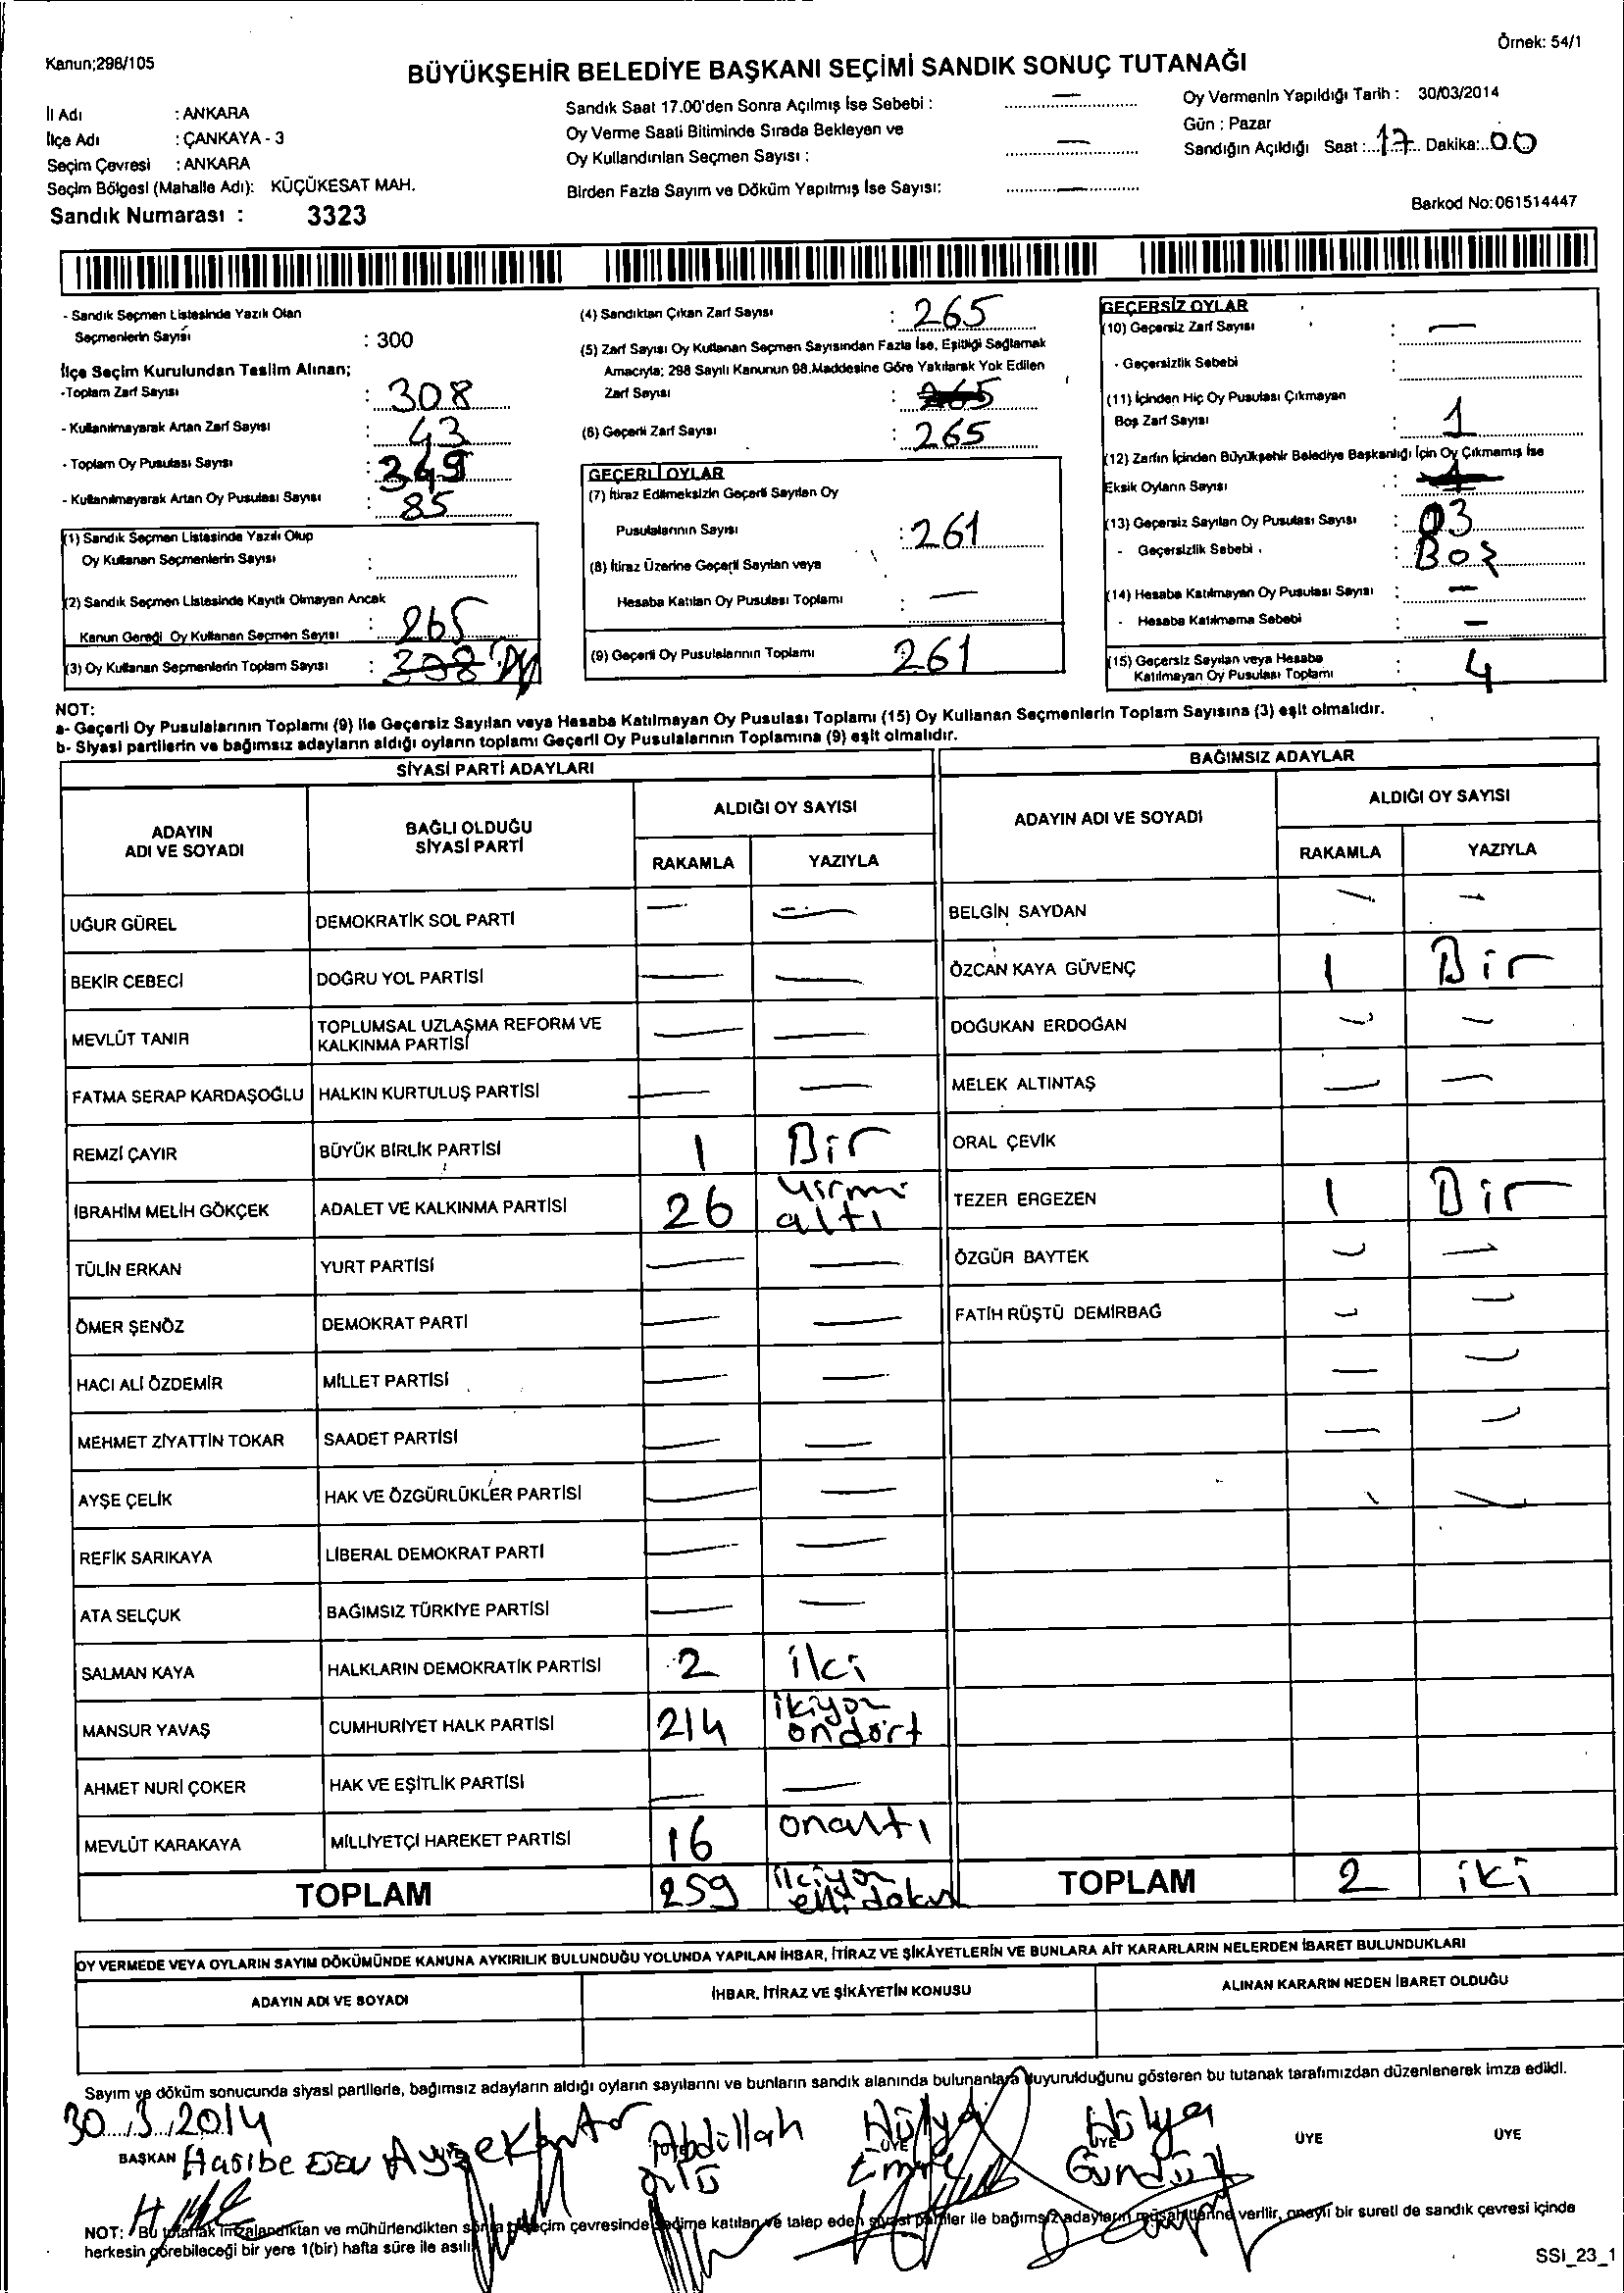 Örnek: 54/1
Kanun;298/105
BÜYÜKŞEHİR BELEDİYE BAŞKANI SEÇİMİ SANDIK SONUÇ TUTANAĞI
İl Adı : ANKARA
İlçe Adı : ÇANKAYA - 3
Seçim Çevresi : ANKARA
Seçim Bölgesi (Mahalle Adı): KÜÇÜKESAT MAH.
Sandık Numarası : 3323
Sandık Saat 17.00'den Sonra Açılmış İse Sebebi : —
Oy Verme Saati Bitiminde Sırada Bekleyen ve
Oy Kullandırılan Seçmen Sayısı : —
Birden Fazla Sayım ve Döküm Yapılmış İse Sayısı: —
Oy Vermenin Yapıldığı Tarih : 30/03/2014
Gün : Pazar
Sandığın Açıldığı Saat : 17 Dakika: 00
Barkod No:061514447
- Sandık Seçmen Listesinde Yazılı Olan
Seçmenlerin Sayısı : 300
İlçe Seçim Kurulundan Teslim Alınan;
-Toplam Zarf Sayısı : 308
- Kullanılmayarak Artan Zarf Sayısı : 43
- Toplam Oy Pusulası Sayısı : 349
- Kullanılmayarak Artan Oy Pusulası Sayısı : 85
(1) Sandık Seçmen Listesinde Yazılı Olup
Oy Kullanan Seçmenlerin Sayısı :
(2) Sandık Seçmen Listesinde Kayıtlı Olmayan Ancak
Kanun Gereği Oy Kullanan Seçmen Sayısı : 265
(3) Oy Kullanan Seçmenlerin Toplam Sayısı : 308
(4) Sandıktan Çıkan Zarf Sayısı : 265
(5) Zarf Sayısı Oy Kullanan Seçmen Sayısından Fazla İse, Eşitliği Sağlamak
Amacıyla; 298 Sayılı Kanunun 98.Maddesine Göre Yakılarak Yok Edilen
Zarf Sayısı : 265
(6) Geçerli Zarf Sayısı : 265
GEÇERLİ OYLAR
(7) İtiraz Edilmeksizin Geçerli Sayılan Oy
Pusulalarının Sayısı : 261
(8) İtiraz Üzerine Geçerli Sayılan veya
Hesaba Katılan Oy Pusulası Toplamı : —
(9) Geçerli Oy Pusulalarının Toplamı 261
GEÇERSİZ OYLAR
(10) Geçersiz Zarf Sayısı : —
- Geçersizlik Sebebi :
(11) İçinden Hiç Oy Pusulası Çıkmayan
Boş Zarf Sayısı : 1
(12) Zarfın İçinden Büyükşehir Belediye Başkanlığı İçin Oy Çıkmamış İse
Eksik Oyların Sayısı :
(13) Geçersiz Sayılan Oy Pusulası Sayısı : 03
- Geçersizlik Sebebi : Boş
(14) Hesaba Katılmayan Oy Pusulası Sayısı : —
- Hesaba Katılmama Sebebi : —
(15) Geçersiz Sayılan veya Hesaba
Katılmayan Oy Pusulası Toplamı : 4
NOT:
a- Geçerli Oy Pusulalarının Toplamı (9) ile Geçersiz Sayılan veya Hesaba Katılmayan Oy Pusulası Toplamı (15) Oy Kullanan Seçmenlerin Toplam Sayısına (3) eşit olmalıdır.
b- Siyasi partilerin ve bağımsız adayların aldığı oyların toplamı Geçerli Oy Pusulalarının Toplamına (9) eşit olmalıdır.
SİYASİ PARTİ ADAYLARI
ADAYIN ADI VE SOYADI BAĞLI OLDUĞU SİYASİ PARTİ ALDIĞI OY SAYISI
RAKAMLA YAZIYLA
UĞUR GÜREL DEMOKRATİK SOL PARTİ — —
BEKİR CEBECİ DOĞRU YOL PARTİSİ — —
MEVLÜT TANIR TOPLUMSAL UZLAŞMA REFORM VE KALKINMA PARTİSİ — —
FATMA SERAP KARDAŞOĞLU HALKIN KURTULUŞ PARTİSİ — —
REMZİ ÇAYIR BÜYÜK BİRLİK PARTİSİ 1 Bir
İBRAHİM MELİH GÖKÇEK ADALET VE KALKINMA PARTİSİ 26 Yirmi altı
TÜLİN ERKAN YURT PARTİSİ — —
ÖMER ŞENÖZ DEMOKRAT PARTİ — —
HACI ALİ ÖZDEMİR MİLLET PARTİSİ — —
MEHMET ZİYATTİN TOKAR SAADET PARTİSİ — —
AYŞE ÇELİK HAK VE ÖZGÜRLÜKLER PARTİSİ — —
REFİK SARIKAYA LİBERAL DEMOKRAT PARTİ — —
ATA SELÇUK BAĞIMSIZ TÜRKİYE PARTİSİ — —
SALMAN KAYA HALKLARIN DEMOKRATİK PARTİSİ 2 iki
MANSUR YAVAŞ CUMHURİYET HALK PARTİSİ 214 ikiyüz ondört
AHMET NURİ ÇOKER HAK VE EŞİTLİK PARTİSİ — —
MEVLÜT KARAKAYA MİLLİYETÇİ HAREKET PARTİSİ 16 onaltı
TOPLAM 259 ikiyüz elli dokuz
BAĞIMSIZ ADAYLAR
ADAYIN ADI VE SOYADI ALDIĞI OY SAYISI
RAKAMLA YAZIYLA
BELGİN SAYDAN — —
ÖZCAN KAYA GÜVENÇ 1 Bir
DOĞUKAN ERDOĞAN — —
MELEK ALTINTAŞ — —
ORAL ÇEVİK
TEZER ERGEZEN 1 Bir
ÖZGÜR BAYTEK — —
FATİH RÜŞTÜ DEMİRBAĞ — —
TOPLAM 2 iki
OY VERMEDE VEYA OYLARIN SAYIM DÖKÜMÜNDE KANUNA AYKIRILIK BULUNDUĞU YOLUNDA YAPILAN İHBAR, İTİRAZ VE ŞİKÂYETLERİN VE BUNLARA AİT KARARLARIN NELERDEN İBARET BULUNDUKLARI
ADAYIN ADI VE SOYADI İHBAR, İTİRAZ VE ŞİKÂYETİN KONUSU ALINAN KARARIN NEDEN İBARET OLDUĞU
Sayım ve döküm sonucunda siyasi partilerle, bağımsız adayların aldığı oyların sayılarını ve bunların sandık alanında bulunanlara duyurulduğunu gösteren bu tutanak tarafımızdan düzenlenerek imza edildi.
30.3.2014
BAŞKAN Hasibe Abdullah Hülya ÜYE Hülya ÜYE ÜYE ÜYE
Emre Gündüz
NOT: Bu tutanak imzalandıktan ve mühürlendikten sonra seçim çevresinde seçime katılan ve talep eden siyasi partiler ile bağımsız adayların müşahitlerine verilir, onaylı bir sureti de sandık çevresi içinde
herkesin görebileceği bir yere 1(bir) hafta süre ile asılır.
SSI_23_1